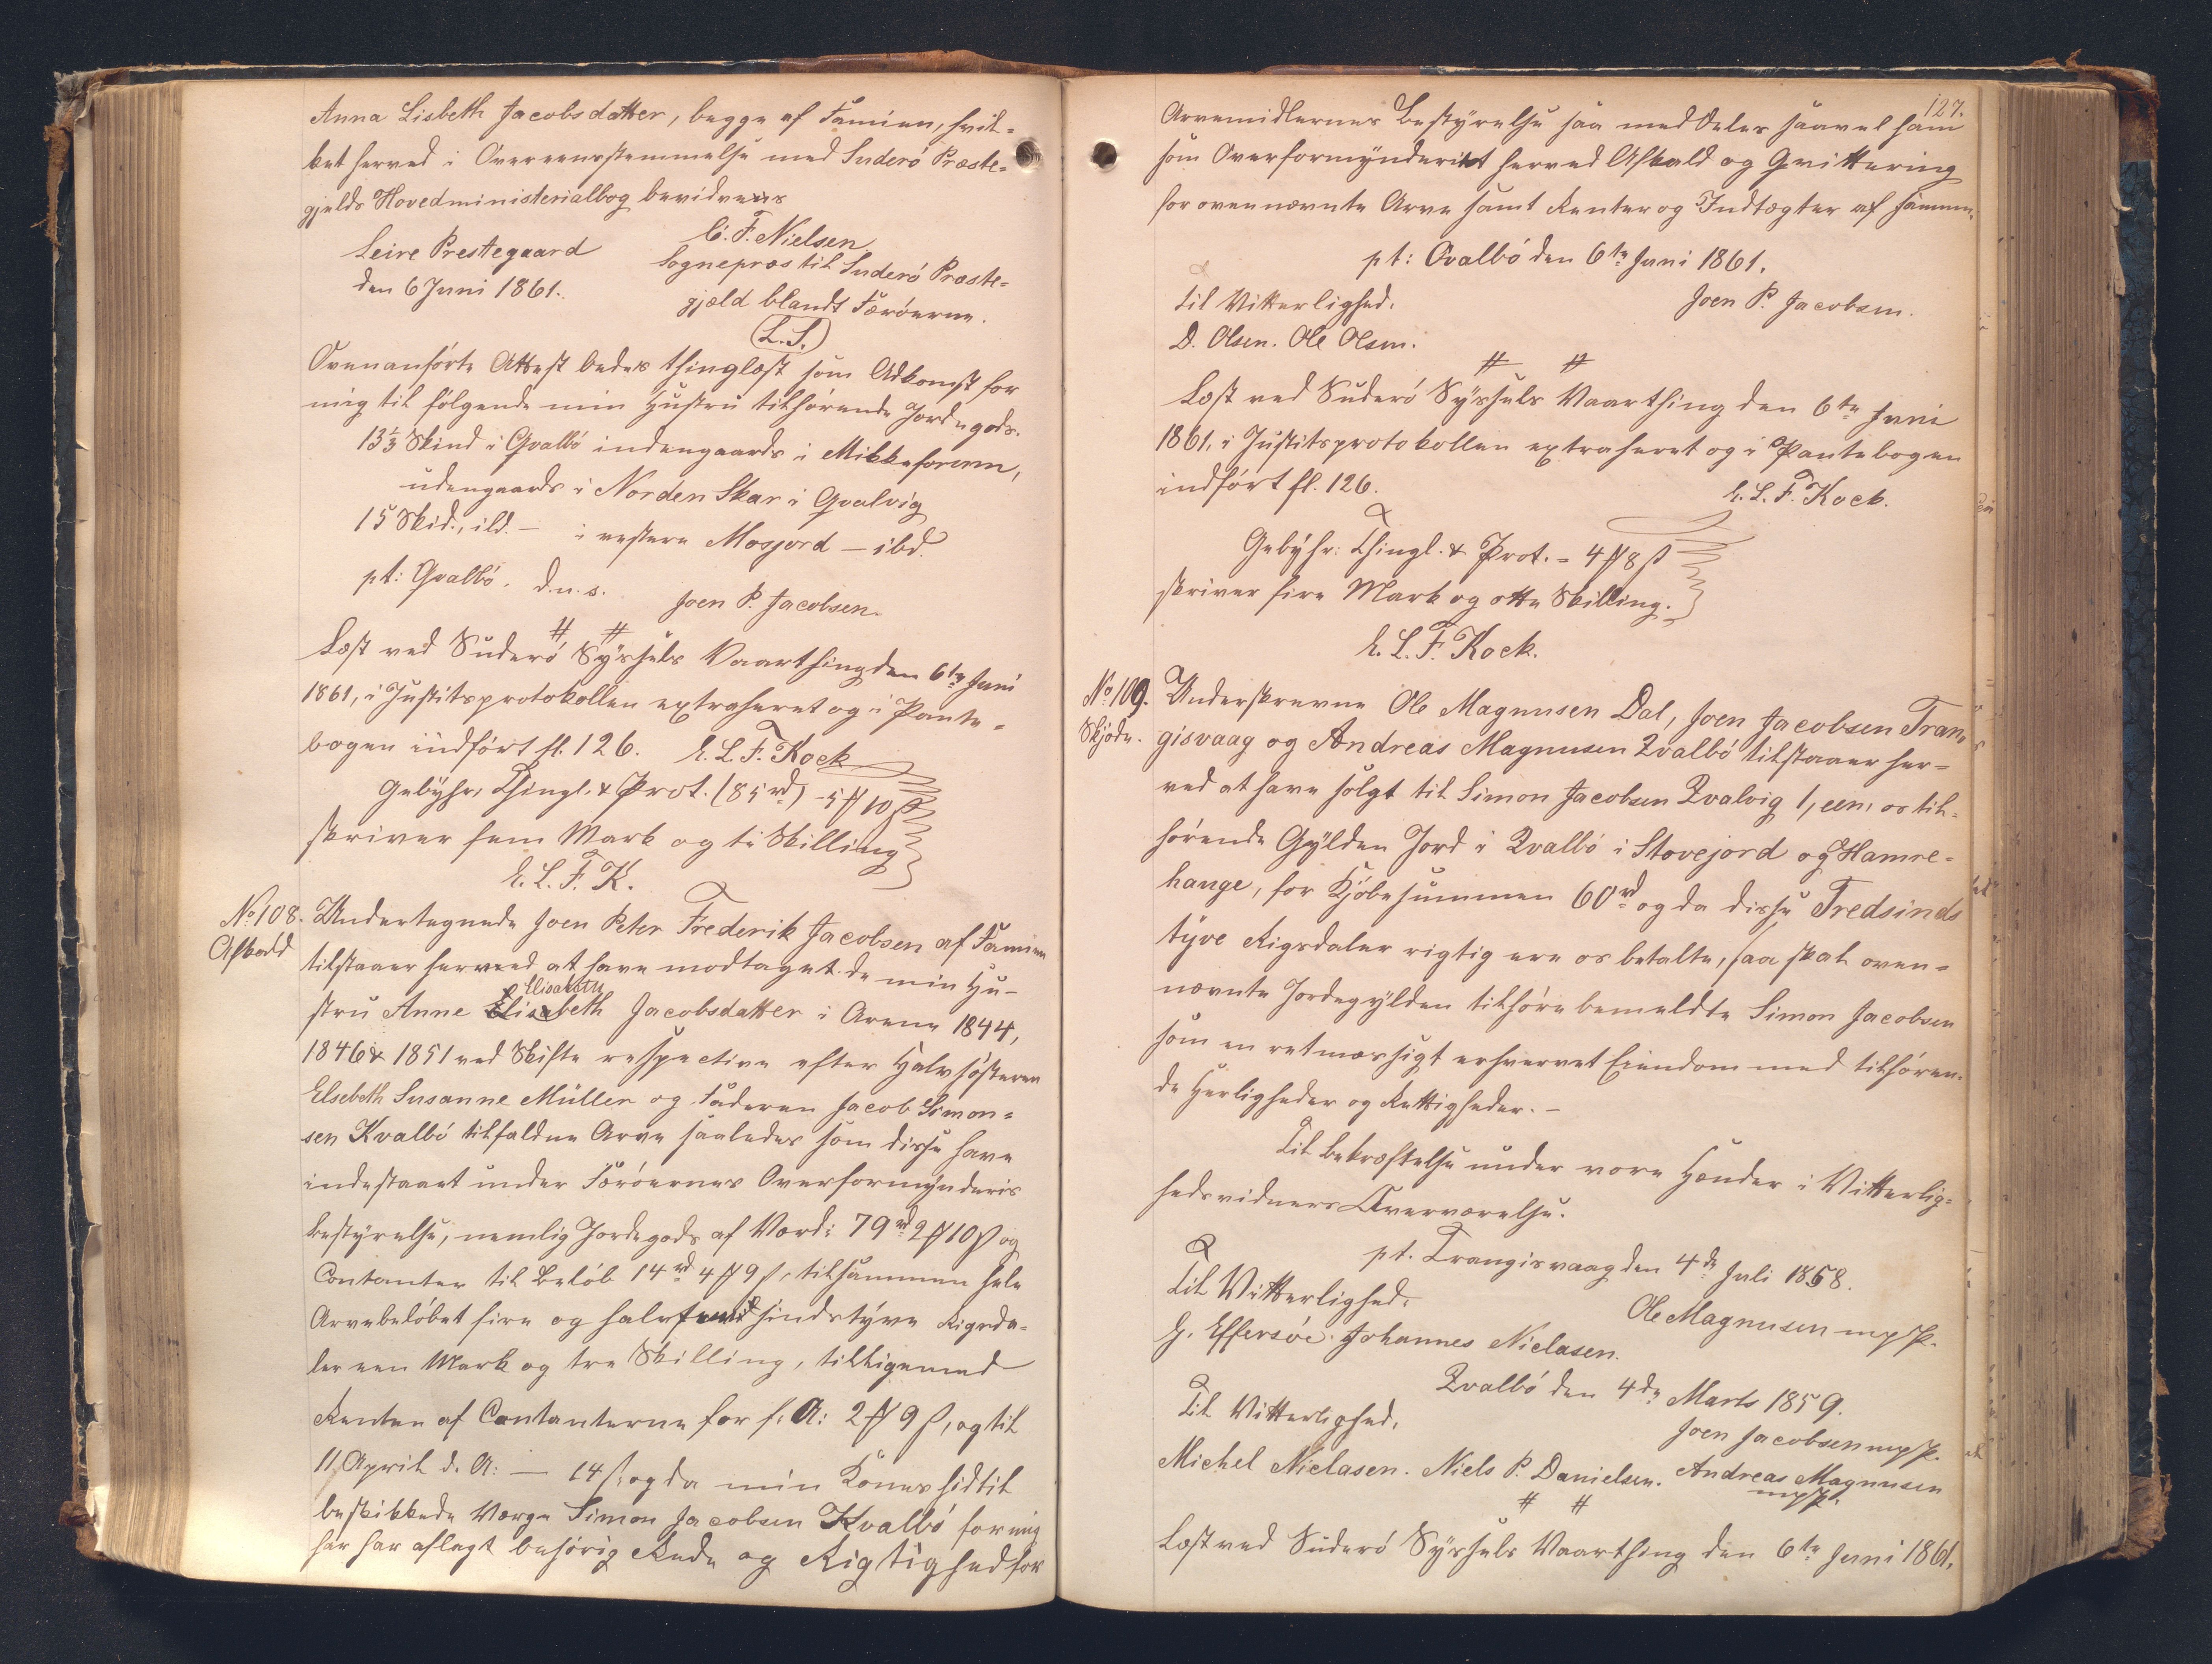 Anna Lisbeth Jacobsdatter, begge af Famien, hvil-
ket herved i Overeensstemmelse med Suderö Præste-
gjelds Hovedministerialbog bevidnes
C. F. Nielsen
Leire Prestegaard
Sognepræs til Suderö Præste-
den 6 Juni 1861.
gjæld blandt Færöerne.
(L.S.)
Ovenanförte Attest bedes thinglæst som Adkomst for
mig til fölgende min Hustru tilhörende Jordegods.
13⅓ Skind i Qvalbö indengaards i
udengaards i Norden Skar i Qvalvig
15 Skid., ild. — i vestere Mosjord — ibd.
pt: Qvalbö. d.u.s.
Joen P. Jacobsen.
# #
Læst ved Suderö Syssels Vaarthing den 6te Juni
1861, i Justitsprotokollen extraheret og i Pante-
bogen indfört fl. 126. E. L. F. Kock
Gebyhr, Thingl. & Prot. (85 rd) - 5 ℔ 10 ß
skriver fem Mark og ti Skilling
E. L. F. K.
No 108.
Afkald
Undertegnede Joen Peter Frederik Jacobsen af Famien
tilstaaer herved at have modtaget de min Hu-
Elisabeth
stru Anne Elisabeth Jacobsdatter i Arene 1844,
1846 & 1851 ved Skifte respective efter Halvsösteren
Elsebeth Susanne Müller og Faderen Jacob Simon-
sen Kvalbö tilfaldne Arve saaledes som disse have
indestaaet under Færöernes Overformynderis
bestyrelse, nemlig Jordegods af Værd: 79 rd 2 ℔ 10 ß og
Contanter til Belöb 14 rd 4 ℔ 9 ß, tilsammen hele
Arvebelöbet fire og halvfemdsindstyve Rigsda-
ler een Mark og tre Skilling, tilligemed
Renten af Contanterne for f. A: 2 ℔ 9 ß, og til
11 April d. A: — 14 ß; og da min Kones hidtil
beskikkede Værge Simon Jacobsen Kvalbö for mig
her har aflagt behörig Rede og Rigtighed for
127.
Arvemidlernes Bestyrelse saa meddeles saavel ham
som Overformynderiet herved Afkald og Qvittering
for ovennævnte Arve samt Renter og Indtægter af samme.
pt: Qvalbö den 6te Juni 1861.
Til Vitterlighed.
Joen P. Jacobsen.
D. Olsen. Ole Olsen.
# #
Læst ved Suderö Syssels Vaarthing den 6te Juni
1861, i Justitsprotokollen extraheret og i Pantebogen
indfört fl. 126.
E. L. F. Kock.
Gebyhr: Thingl. & Prot. = 4 ℔ 8 ß
skriver fire Mark og otte Skilling.
E. L. F. Kock.
No 109.
Skjöde.
Underskrevne Ole Magnusen Dal, Joen Jacobsen Tran-
gisvaag og Andreas Magnusen Qvalbö tilstaaer her-
ved at have solgt til Simon Jacobsen Qvalvig 1, een, os til-
hörende Gylden Jord i Qvalbö i Stovejord og Hamre-
hauge, for Kjöbesummen 60 rd og da disse Tredsinds
tyve Rigsdaler rigtig ere os betalte, saa skal oven-
nævnte Jordegylden tilhöre bemeldte Simon Jacobsen
som en retmæssigt erhvervet Eiendom med tilhören-
de Herligheder og Rettigheder. —
Til Bekræftelse under vore Hænder i Vitterlig-
hedsvidners Overværelse.
pt. Trangisvaag den 4de Juli 1858.
Til Vitterlighed.
Ole Magnusen mpP.
G. Effersöe. Johannes Nielasen.
Qvalbö den 4de Marts 1859.
Til Vitterlighed.
Joen Jacobsen mpP.
Michel Nielasen. Niels P. Danielsen. Andreas Magnusen
mpP.
# #
Læst ved Suderö Syssels Vaarthing den 6te Juni 1861,